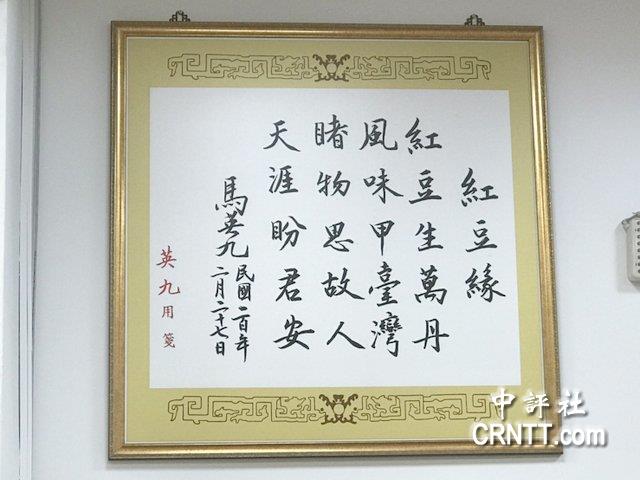 紅豆緣
紅豆生萬丹
風味甲臺灣
睹物思故人
天涯盼君安
馬英九
民國一百年
二月二十七日
英九用箋
中評社
CRNTT.com